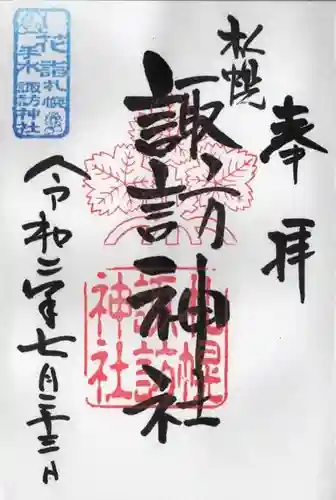 奉拝
札幌
諏訪神社
札幌
諏訪
神社
令和二年七月二十三日
花詣
手水
札幌
諏訪神社